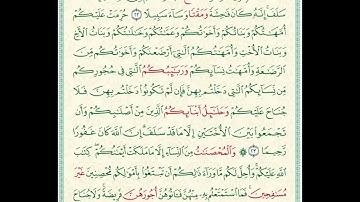 سَلَفَ إِنَّهُ كَانَ فَاحِشَةً وَمَقْتًا وَسَاءَ سَبِيلًا ٢٢ حُرِّمَتْ عَلَيْكُمْ
أُمَّهَاتُكُمْ وَبَنَاتُكُمْ وَأَخَوَاتُكُمْ وَعَمَّاتُكُمْ وَخَالَاتُكُمْ وَبَنَاتُ الْأَخِ
وَبَنَاتُ الْأُخْتِ وَأُمَّهَاتُكُمُ الَّتِي أَرْضَعْنَكُمْ وَأَخَوَاتُكُمْ مِنَ
الرَّضَاعَةِ وَأُمَّهَاتُ نِسَائِكُمْ وَرَبَائِبُكُمُ الَّتِي فِي حُجُورِكُمْ
مِنْ نِسَائِكُمُ الَّتِي دَخَلْتُمْ بِهِنَّ فَإِنْ لَمْ تَكُونُوا دَخَلْتُمْ بِهِنَّ فَلَا
جُنَاحَ عَلَيْكُمْ وَحَلَائِلُ أَبْنَائِكُمُ الَّذِينَ مِنْ أَصْلَابِكُمْ وَأَنْ
تَجْمَعُوا بَيْنَ الْأُخْتَيْنِ إِلَّا مَا قَدْ سَلَفَ إِنَّ اللَّهَ كَانَ غَفُورًا
رَحِيمًا ٢٣ وَالْمُحْصَنَاتُ مِنَ النِّسَاءِ إِلَّا مَا مَلَكَتْ أَيْمَانُكُمْ كِتَابَ
اللَّهِ عَلَيْكُمْ وَأُحِلَّ لَكُمْ مَا وَرَاءَ ذَلِكُمْ أَنْ تَبْتَغُوا بِأَمْوَالِكُمْ مُحْصِنِينَ غَيْرَ
مُسَافِحِينَ فَمَا اسْتَمْتَعْتُمْ بِهِ مِنْهُنَّ فَآتُوهُنَّ أُجُورَهُنَّ فَرِيضَةً وَلَا جُنَاحَ